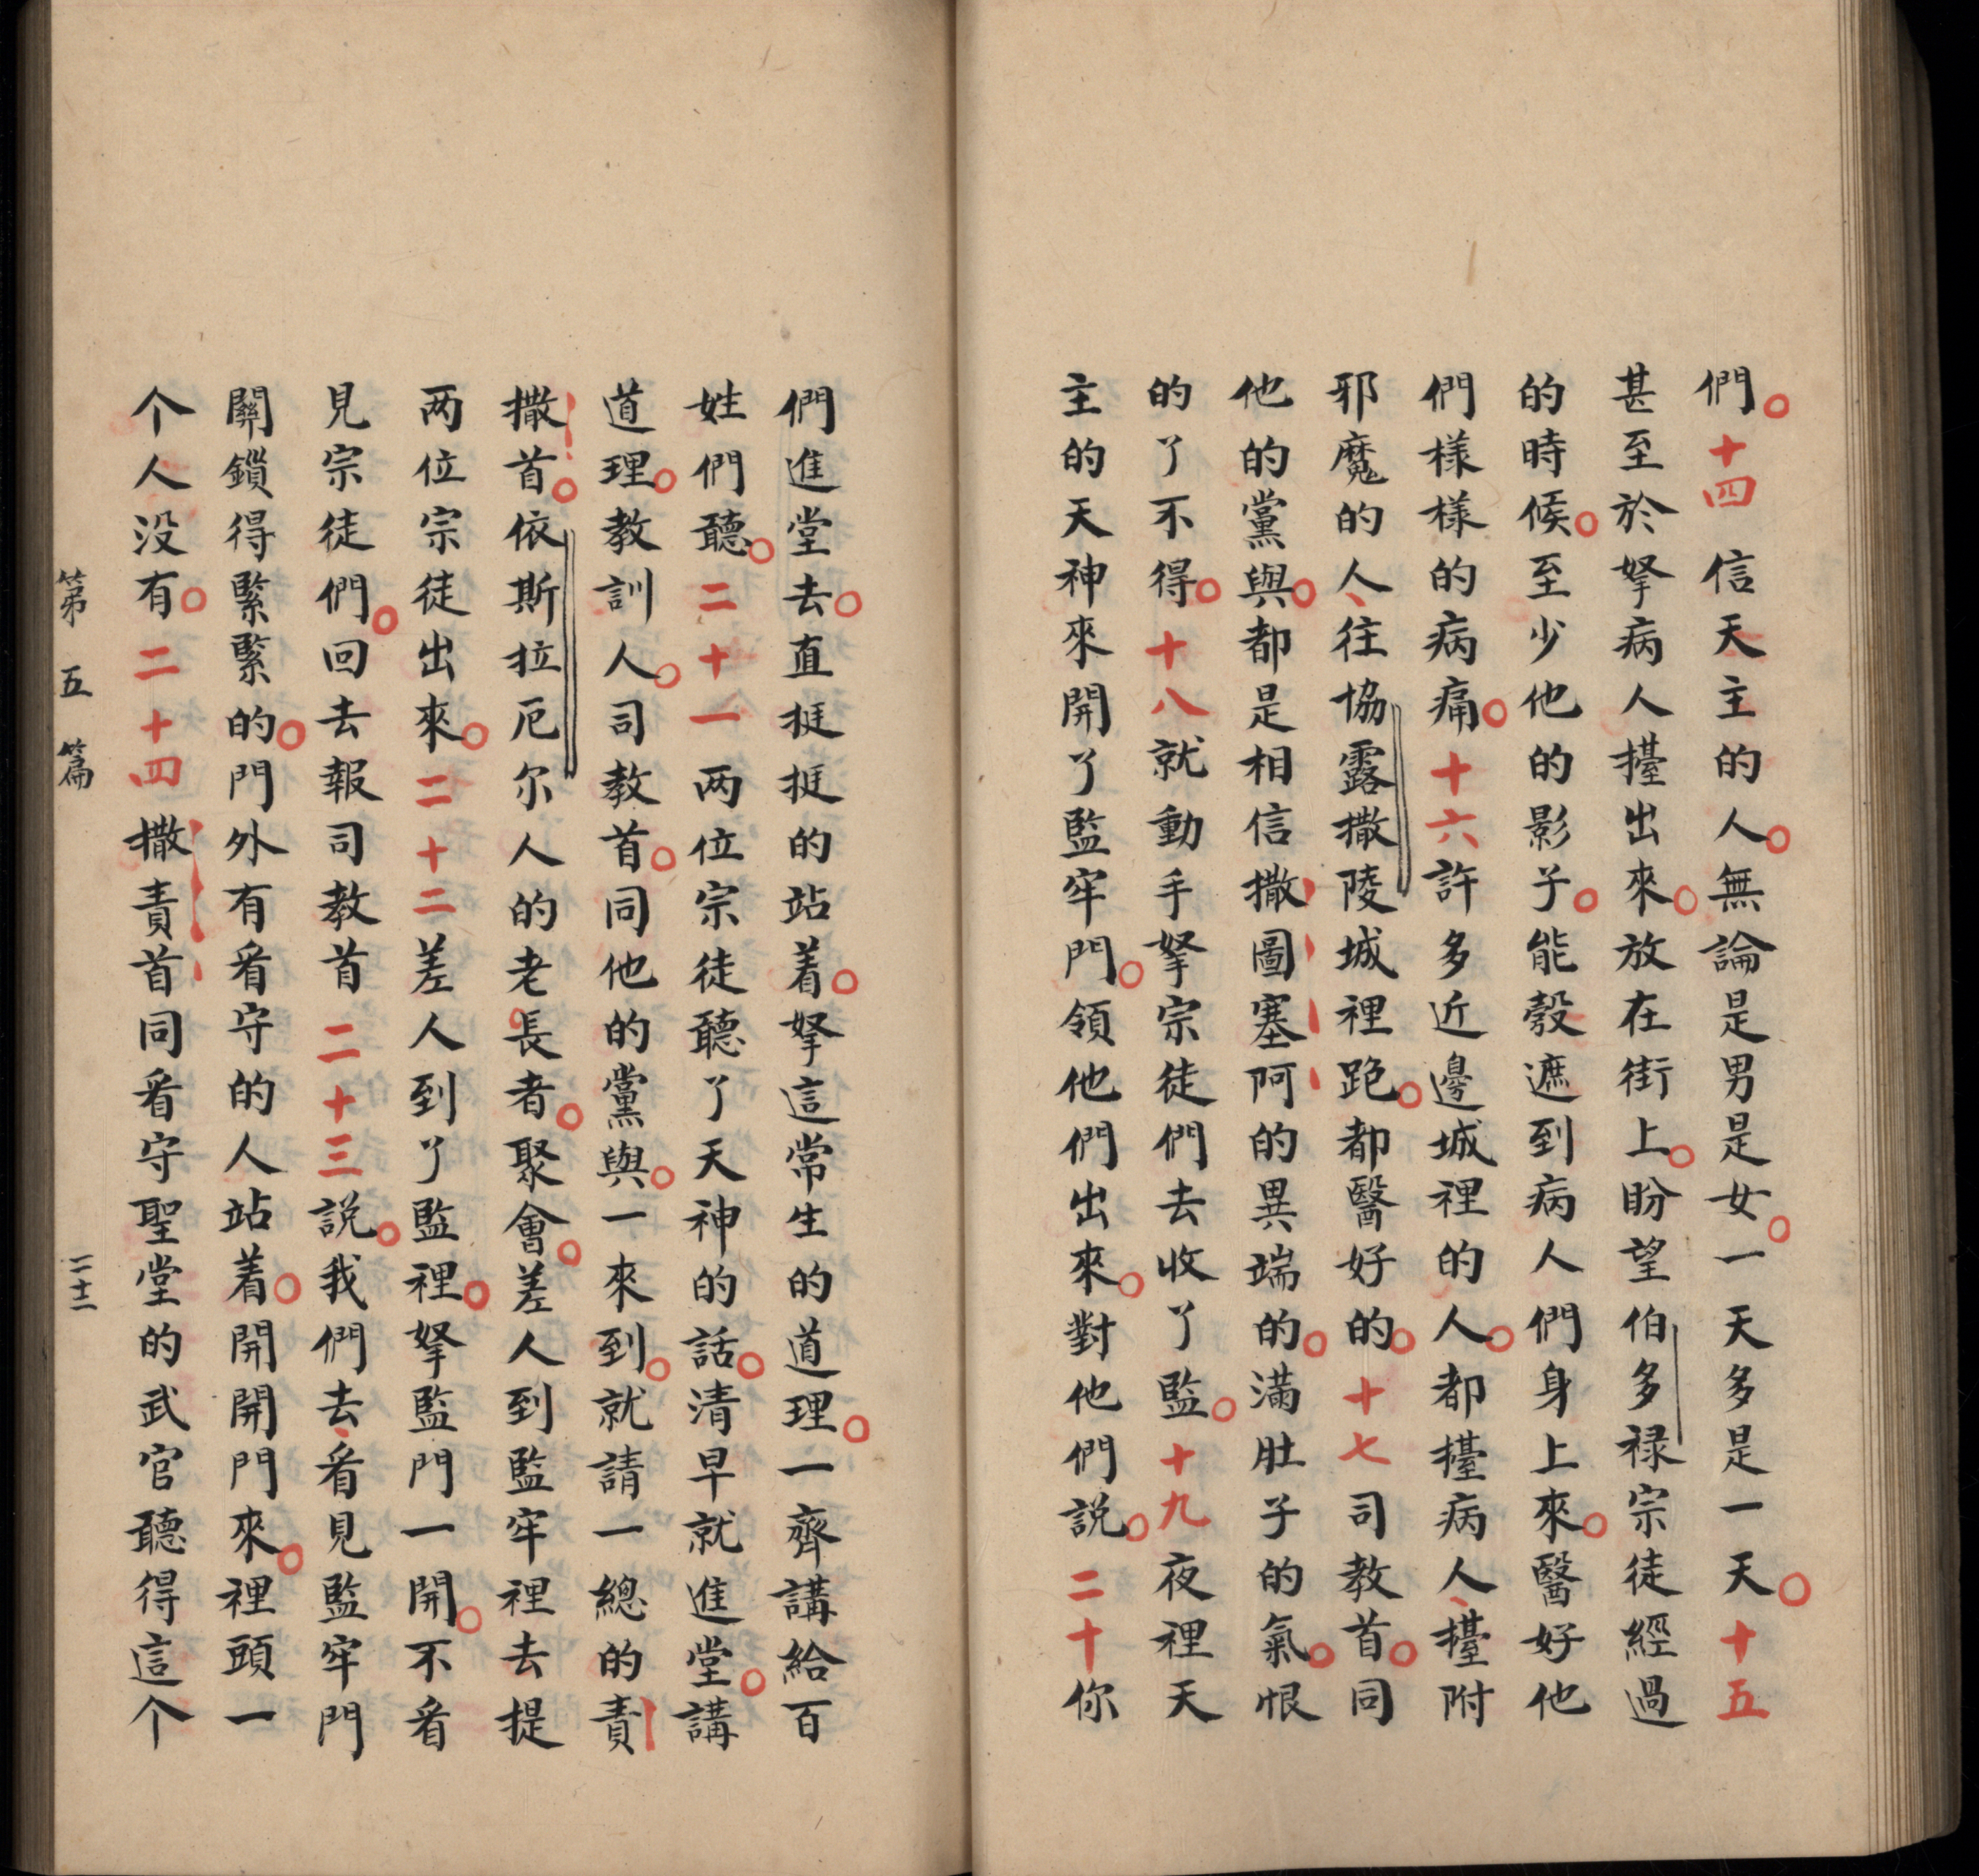 們。十四信天主的人。無論是男是女。一天多是一天。十五
甚至於拏病人擡出來。放在街上。盼望伯多禄宗徒經過
的時候。至少他的影子。能彀遮到病人們身上來。醫好他
們樣樣的病痛。十六許多近邊城裡的人。都擡病人、擡附
邪魔的人、往協露撒陵城裡跑。都醫好的。十七司教首。同
他的黨與。都是相信撒圖塞阿的異端的。滿肚子的氣。恨
的了不得。十八就動手拏宗徒們去收了監。十九夜裡天
主的天神來開了監牢門。領他們出來。對他們説。二十你
們進堂去。直挺挺的站着。拏這常生的道理。一齊講給百
姓們聽。二十一两位宗徒聽了天神的話。清早就進堂。講
道理。教訓人。司教首。同他的黨與。一來到。就請一總的責
撒首。依斯拉厄尔人的老長者。聚會。差人到監牢裡去提
两位宗徒出來。二十二差人到了監裡。拏監門一開。不看
見宗徒們。回去報司教首二十三説。我們去、看見監牢門
關鎖得緊緊的。門外有看守的人站着。開開門來。裡頭一
个人没有。二十四撒責首同看守聖堂的武官聽得這个
第五篇 二十二